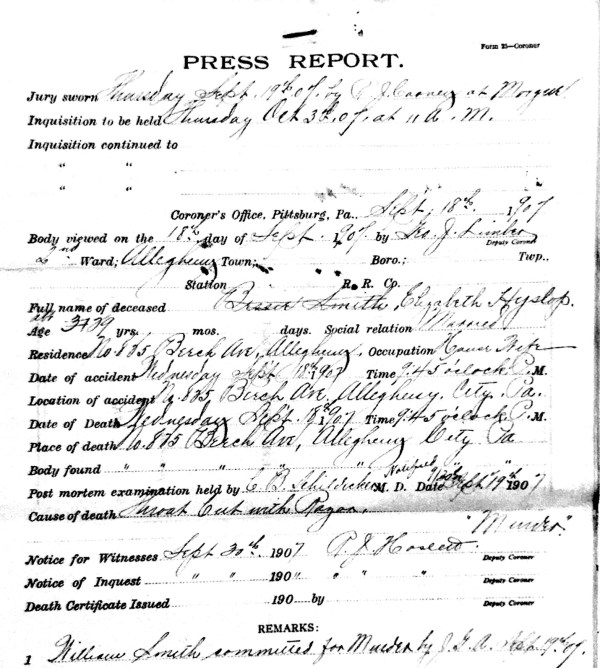 Form 25—Coroner
PRESS REPORT.
Jury sworn Thursday Sept. 19th 07, by P. J. at Morgue
Inquisition to be held Thursday Oct 3d, 07, at 11 A. M.
Inquisition continued to
" "
" "
Coroner's Office, Pittsburg, Pa., Sept. 18th, 1907
Body viewed on the 18th, day of Sept. 1907 by Geo. J.
Deputy Coroner
2nd Ward; Allegheny Town; Boro.; Twp..
Station R. R. Co.
Full name of deceased Bessie Smith, Elizabeth Hyslop.
Age 39 yrs, mos. days. Social relation Married
Residence No. 835 Birch Ave, Allegheny. Occupation House Wife
Date of accident Wednesday Sept 18th 1907 Time 9.45 o'clock P. M.
Location of accident No. 835 Birch Ave. Allegheny. City, Pa.
Date of Death Wednesday Sept. 18th 1907 Time 9.45 o'clock P. M.
Place of death No. 835 Birch Ave, Allegheny City Pa
Body found " " " " " " "
Notified
Post mortem examination held by C. B. M. D. Date Sept 19th 1907
Cause of death Throat Cut with Razor.
"Murder"
Notice for Witnesses Sept 30th, 1907 P. J. Deputy Coroner
Notice of Inquest " " 190 " " " " Deputy Coroner
Death Certificate Issued 190 by Deputy Coroner
REMARKS:
1 William Smith committed for Murder by J. G. A. Sept. 19th 07.